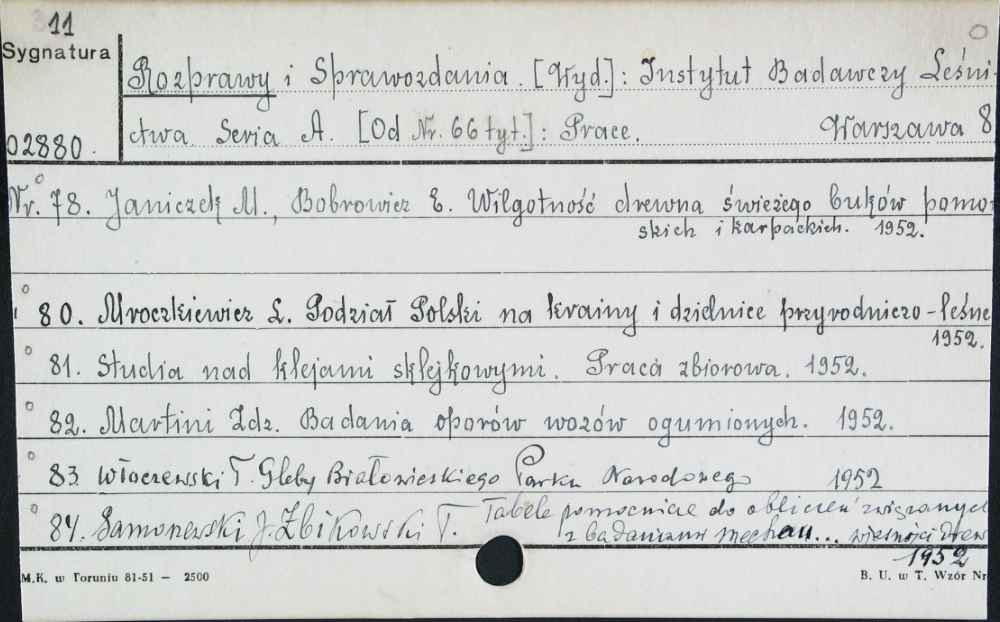 11
Sygnatura
Rozprawy i Sprawozdania. [Wyd.]: Instytut Badawczy Leśni-
ctwa Seria A. [Od Nr. 66 tyt.]: Prace. Warszawa 8
02880.
Nr. 78. Janiczek M., Bobrowicz E. Wilgotność drewna świeżego buków pomo-
skich i karpackich. 1952.
80. Mroczkiewicz L. Podział Polski na krainy i dzielnice przyrodniczo-leśne
1952.
81. Studia nad klejami sklejkowymi. Praca zbiorowa. 1952.
82. Martini Zdz. Badania oporów wozów ogumionych. 1952.
83. Włoczewski T. Gleby Białowieskiego Parku Narodowego 1952
84. J. Zbikowski T. Tabele pomocnicze do obliczeń związanych
z badaniami mechan...
1952
M.K. w Toruniu 81-51 — 2500
B. U. w T. Wzór Nr